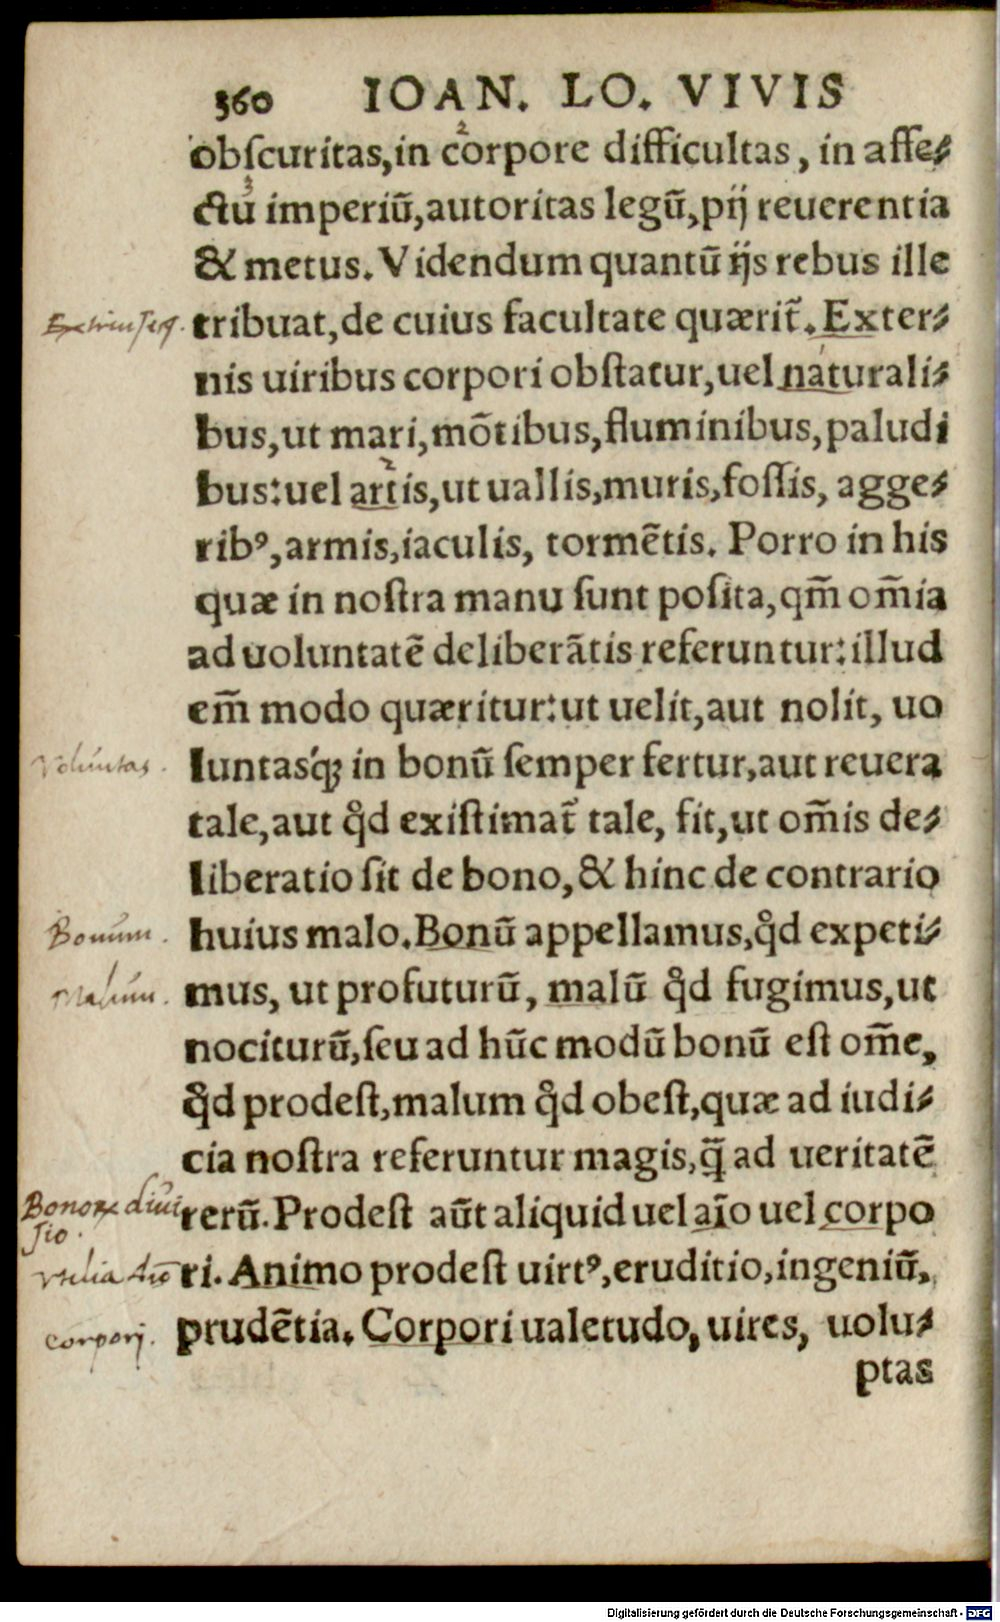 360 IOAN. LO. VIVIS
obſcuritas, in corpore difficultas, in affe⸗
ctu imperiū, autoritas legū, pij reuerentia
& metus. Videndum quantū ijs rebus ille
Extrinseq. tribuat, de cuius facultate quærit̃. Exter⸗
nis uiribus corpori obſtatur, uel naturali⸗
bus, ut mari, mōtibus, fluminibus, paludi
bus: uel artis, ut uallis, muris, foſſis, agge⸗
ribꝰ, armis, iaculis, tormētis. Porro in his
quæ in noſtra manu ſunt poſita, qm̃ om̃ia
ad uoluntatē deliberātis referuntur: illud
em̃ modo quæritur: ut uelit, aut nolit, uo
Voluntas. luntasq́ꝫ in bonū ſemper fertur, aut reuera
tale, aut qͦd existimat̃ tale, fit, ut om̃is de⸗
liberatio ſit de bono, & hinc de contrario
Bonum. huius malo. Bonū appellamus, qͦd expeti⸗
Malum. mus, ut profuturū, malū qͦd fugimus, ut
nociturū, ſeu ad hūc modū bonū eſt om̃e,
qͦd prodeſt, malum qͦd obeſt, quæ ad iudi⸗
cia noſtra referuntur magis, q̃ ad ueritatē
Bonoꝝ diui rerū. Prodeſt aūt aliquid uel aīo uel corpo
sio.
Vtilia aīo ri. Animo prodeſt uirtꝰ, eruditio, ingeniū,
corpori. prudētia. Corpori ualetudo, uires, uolu⸗
ptas
Digitalisierung gefördert durch die Deutsche Forschungsgemeinschaft - DFG